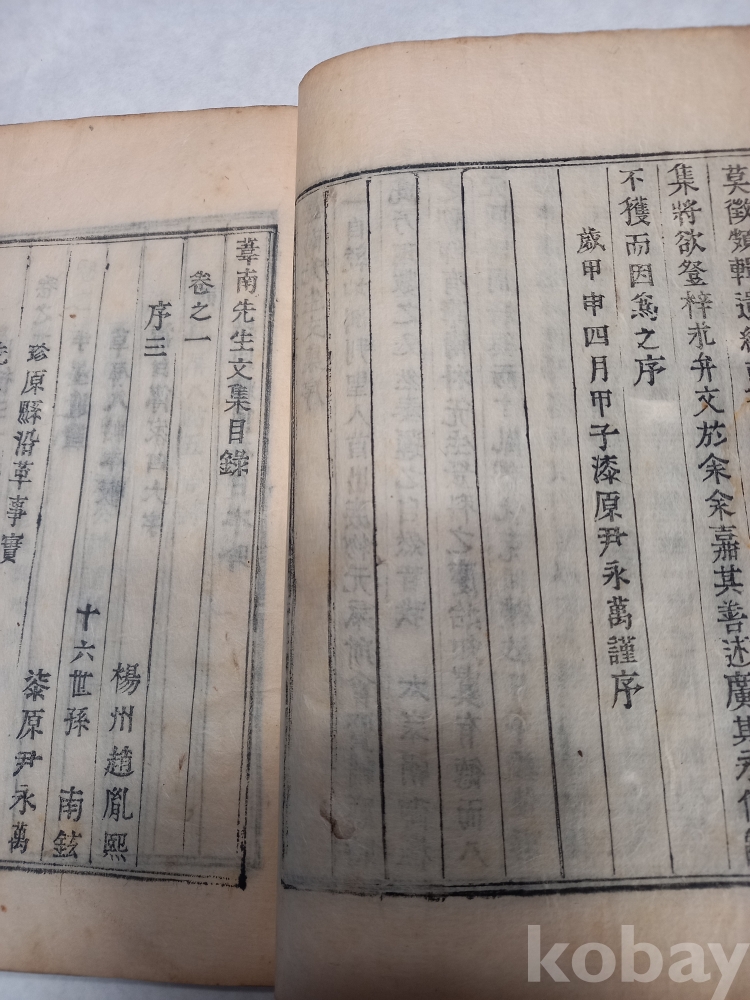 莫徵類輯遺
集將欲登梓求弁文於余余嘉其善述廣其永
不獲而因爲之序
歲甲申四月甲子漆原尹永萬謹序
葦南先生文集目錄
卷之一
序三
楊州趙胤熙
十六世孫 南鉉
漆原尹永萬
珍原縣沿革事實
kobay